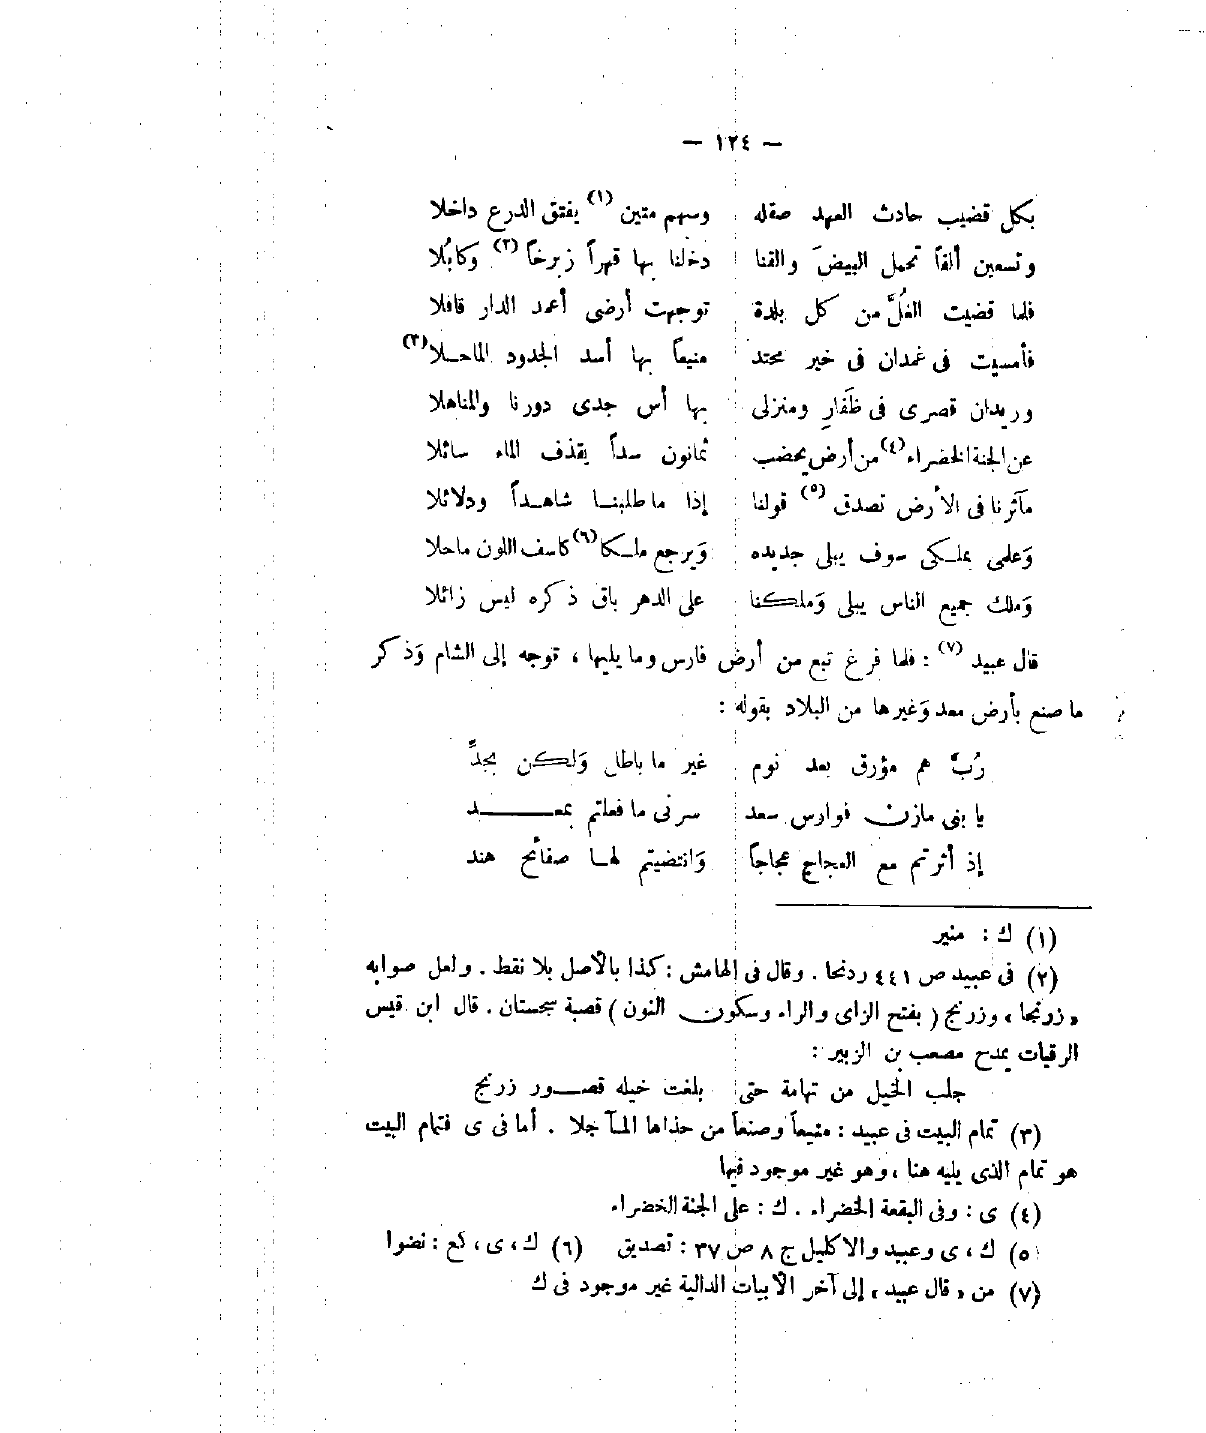 — ١٢٤ —
بكل قضيب حادث العهد صقله وسهم متين (١) يفتق الدرع داخلا
وتسعين ألفاً تحمل البيضَ والقنا دخلنا بها قهراً زبرخاً (٢) وكابُلا
فلما قضيت الغُلَّ من كل بلدة توجهت أرضى أعمد الدار قافلا
فأمسيت فى غمدان فى خير محتد منيعاً بها أسد الجدود الماحلا (٣)
وريدان قصرى فى ظَفارِ ومنزلى بها أس جدى دورنا والمناهلا
عن الجنة الخضراء (٤) من أرض يحضب ثمانون سداً يقذف الماء سائلا
مآثرنا فى الأرض تصدق (٥) قولنا إذا ما طلبنا شاهداً ودلائلا
وَعلمى بملكى سوف يبلى جديده وَيرجع ملكا (٦) كاسف اللون ماحلا
وَملك جميع الناس يبلى وَملكنا على الدهر باق ذكره ليس زائلا
قال عبيد (٧) : فلما فرغ تبع من أرض فارس وما يليها ، توجه إلى الشام وَذكر
ما صنع بأرض معد وَغيرها من البلاد بقوله :
رُبَّ هم مؤرق بعد نوم غير ما باطل وَلكن بجدِّ
يا بنى مازن فوارس سعد سرنى ما فعلتم بمعد
إذ أثرتم مع العجاج عجاجاً وَانتضيتم لها صفائح هند
(١) ك : منير
(٢) فى عبيد ص ٤٤١ ردنحا . وقال فى الهامش : كذا بالأصل بلا نقط . ولعل صوابه
« زرنجا » وزرنج ( بفتح الزاى والراء وسكون النون ) قصبة سجستان . قال ابن قيس
الرقيات يمدح مصعب بن الزبير :
جلب الخيل من تهامة حتى بلغت خيله قصور زرنج
(٣) تمام البيت فى عبيد : منيعاً وصنعاً من حذاها المآجلا . أما فى ى فتمام البيت
هو تمام الذى يليه هنا ، وهو غير موجود فيها
(٤) ى : وفى البقعة الخضراء . ك : على الجنة الخضراء
(٥) ك ، ى وعبيد والاكليل ج ٨ ص ٣٧ : تصديق (٦) ك ، ى ، كع : نضوا
(٧) من « قال عبيد » إلى آخر الأبيات الدالية غير موجود فى ك